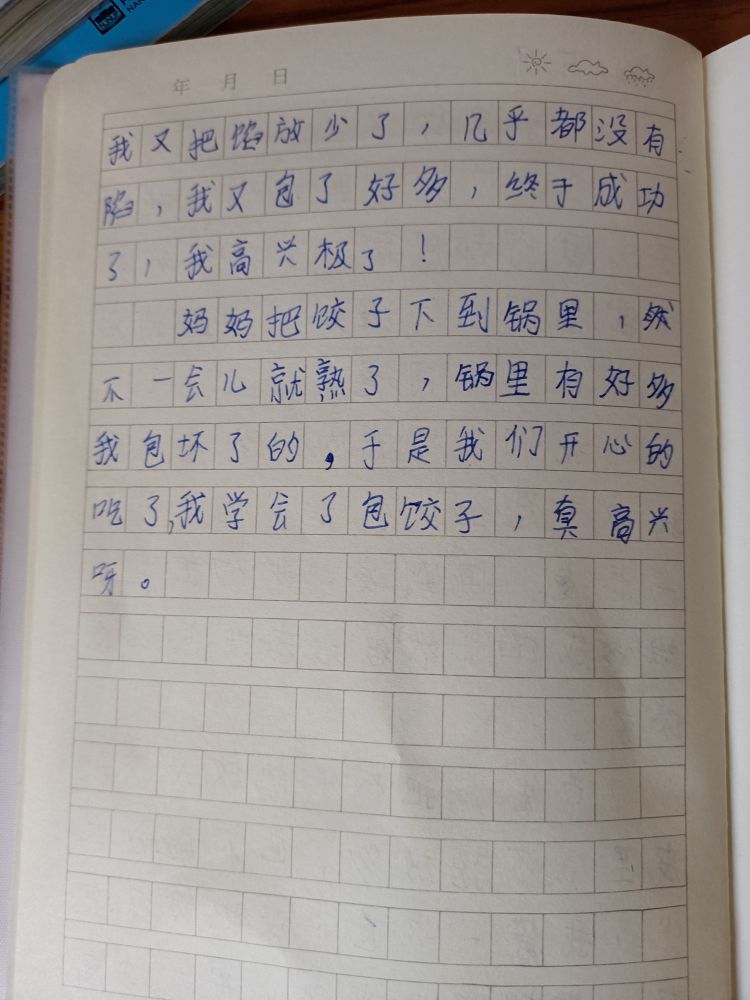 年 月 日
我又把馅放少了，几乎都没有
陷，我又包了好多，终于成功
了，我高兴极了！
妈妈把饺子下到锅里，然
不一会儿就熟了，锅里有好多
我包坏了的，于是我们开心的
吃了，我学会了包饺子，真高兴
呀。